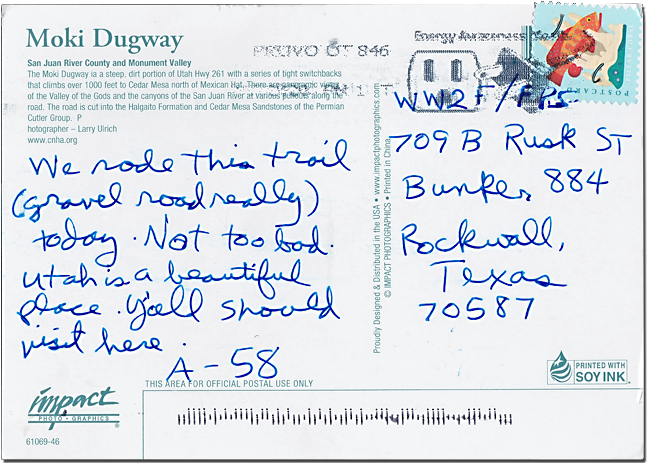 Moki Dugway
San Juan River County and Monument Valley
The Moki Dugway is a steep, dirt portion of Utah Hwy 261 with a series of tight switchbacks
that climbs over 1000 feet to Cedar Mesa north of Mexican Hat. There are panoramic views
of the Valley of the Gods and the canyons of the San Juan River at various pullouts along the
road. The road is cut into the Halgaito Formation and Cedar Mesa Sandstones of the Permian
Cutler Group. P
hotographer – Larry Ulrich
www.cnha.org
We rode this trail
(gravel road really)
today. Not too bad.
Utah is a beautiful
place. Y'all should
visit here.
A-58
impact
PHOTO • GRAPHICS
61069-46
PROVO UT 846
Energy Awareness
POSTCARD
WW2 F/FRS
709 B Rusk ST
Bunker 884
Rockwall,
Texas
70587
Proudly Designed & Distributed in the USA • www.impactphotographics.com
© IMPACT PHOTOGRAPHICS • Printed in China
PRINTED WITH
SOY INK
THIS AREA FOR OFFICIAL POSTAL USE ONLY